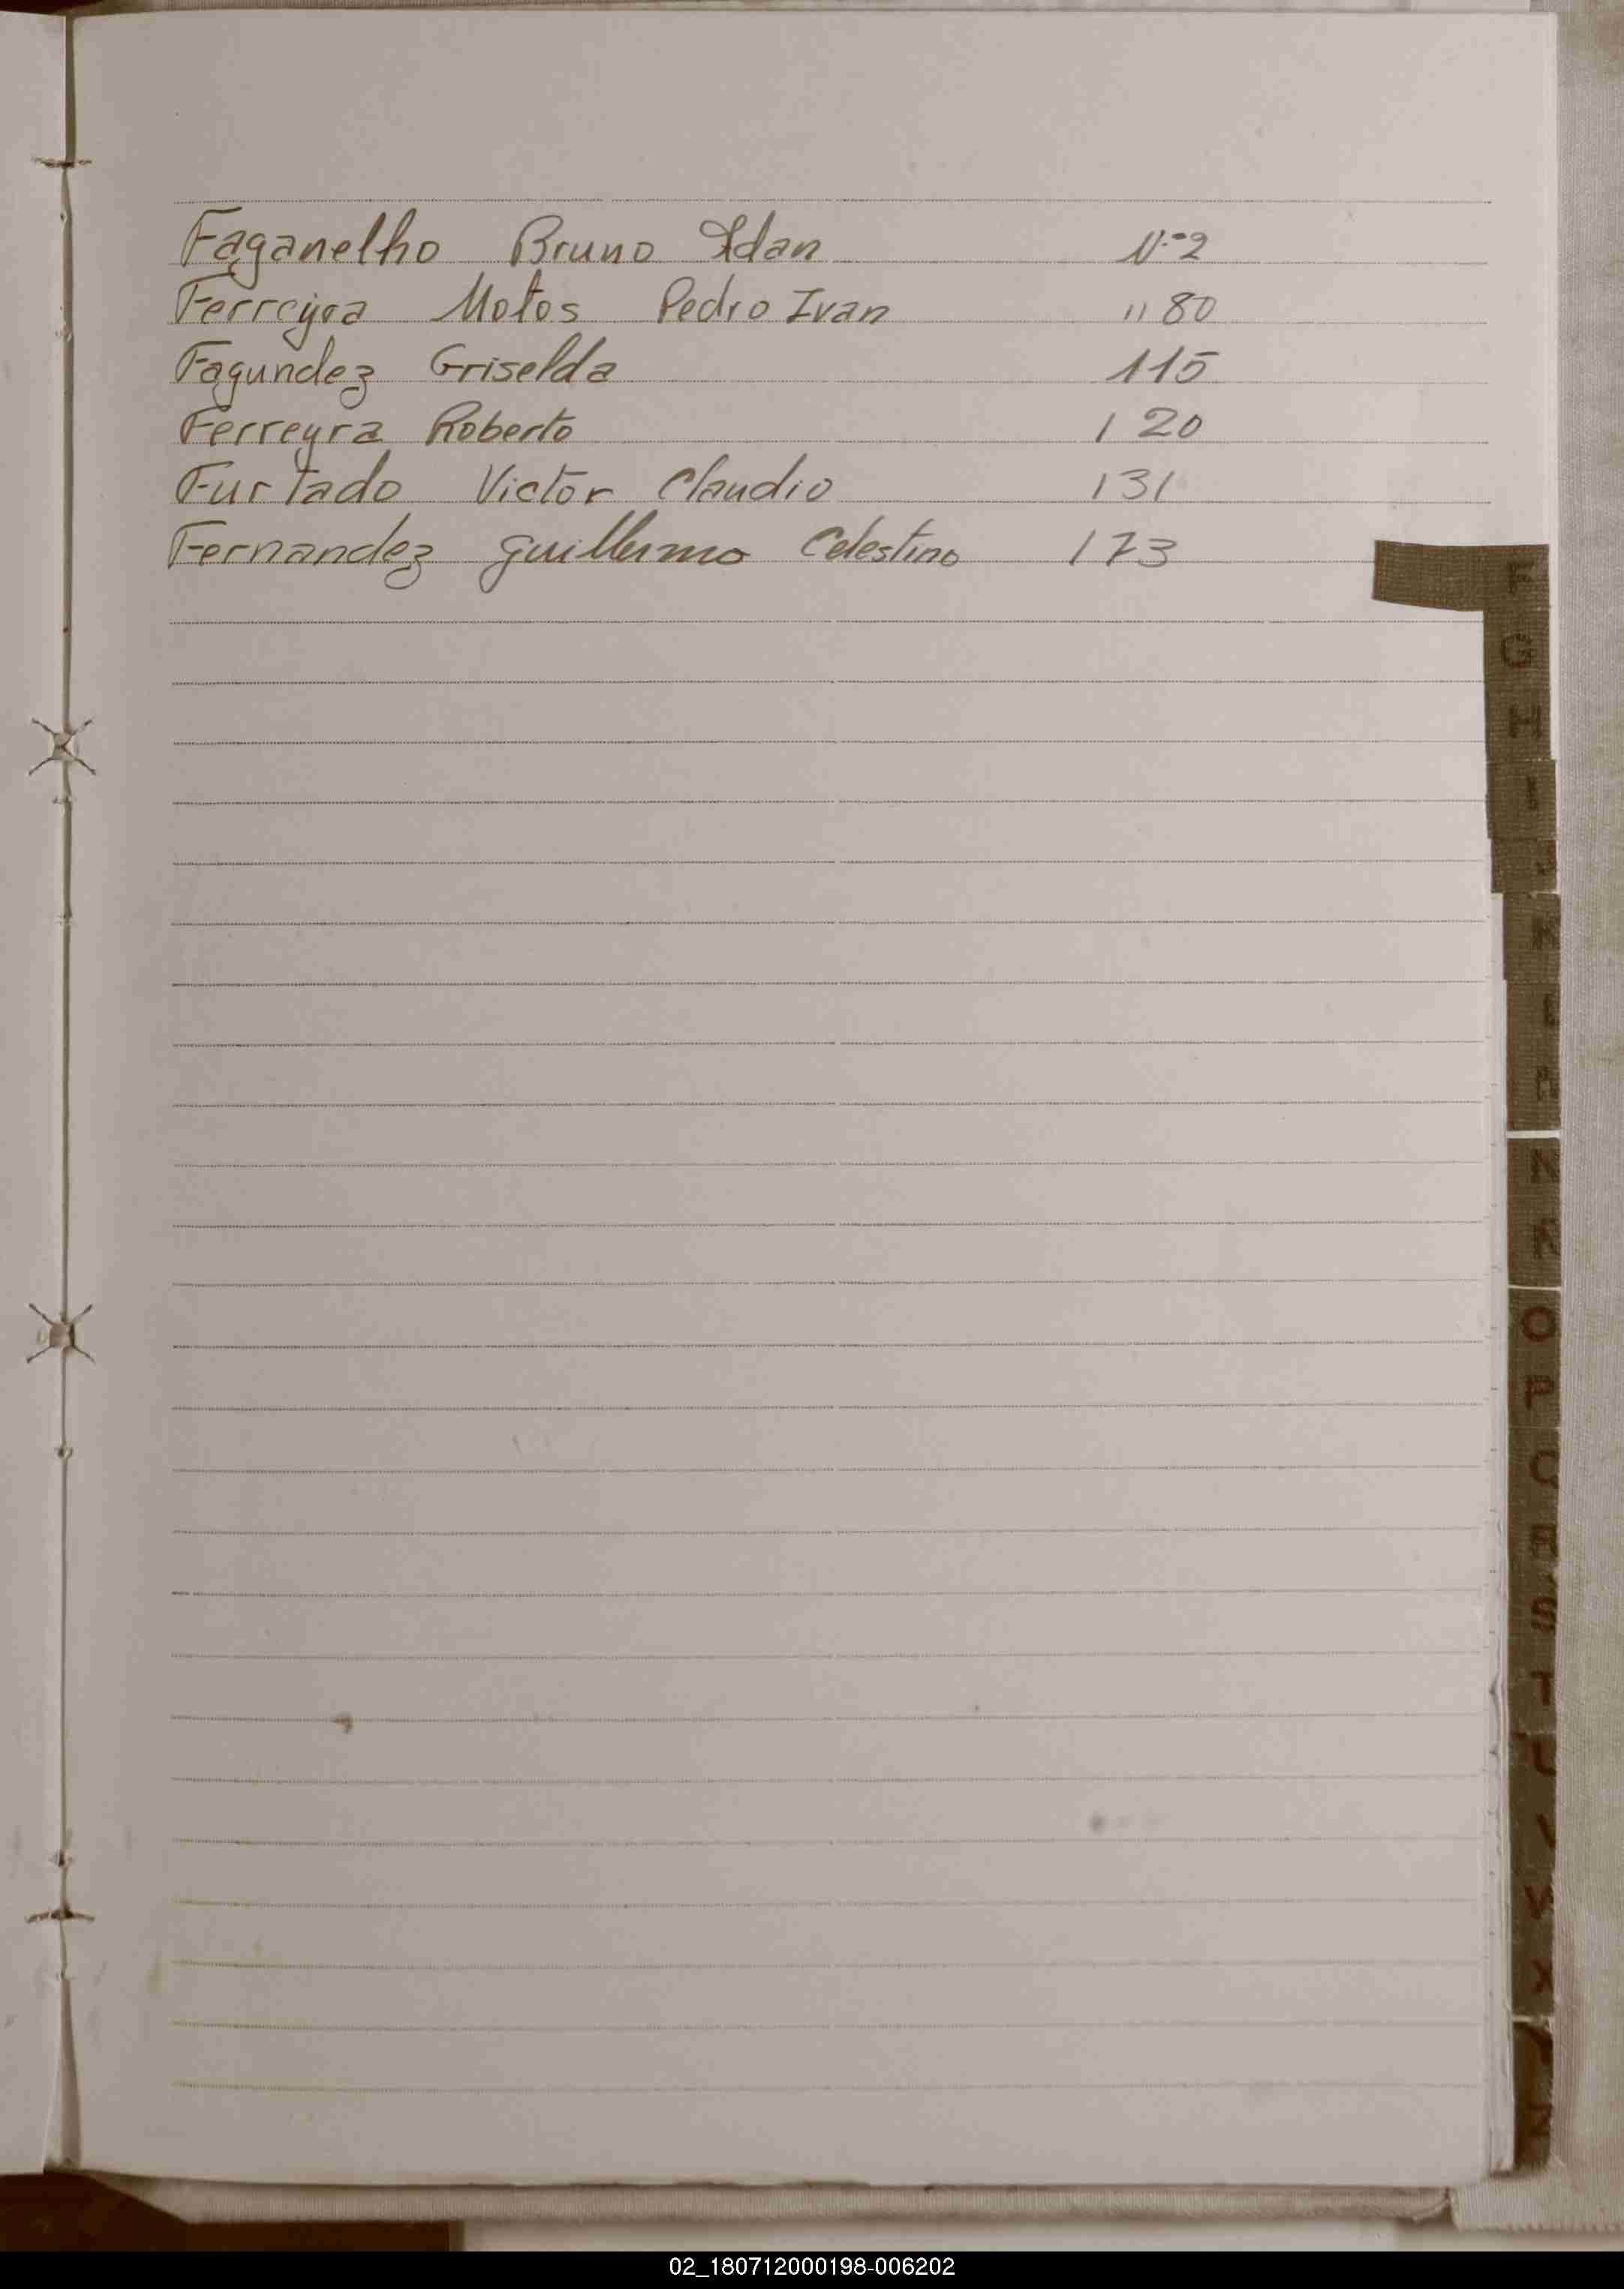 Faganelho Bruno Idan N.º 2
Ferreyra Motos Pedro Ivan " 80
Fagundez Griselda 115
Ferreyra Roberto 120
Furtado Victor Claudio 131
Fernandez Guillermo Celestino 173
F
G
H
I
J
K
L
M
N
Ñ
O
P
Q
R
S
T
U
V
X
Z
02_180712000198-006202